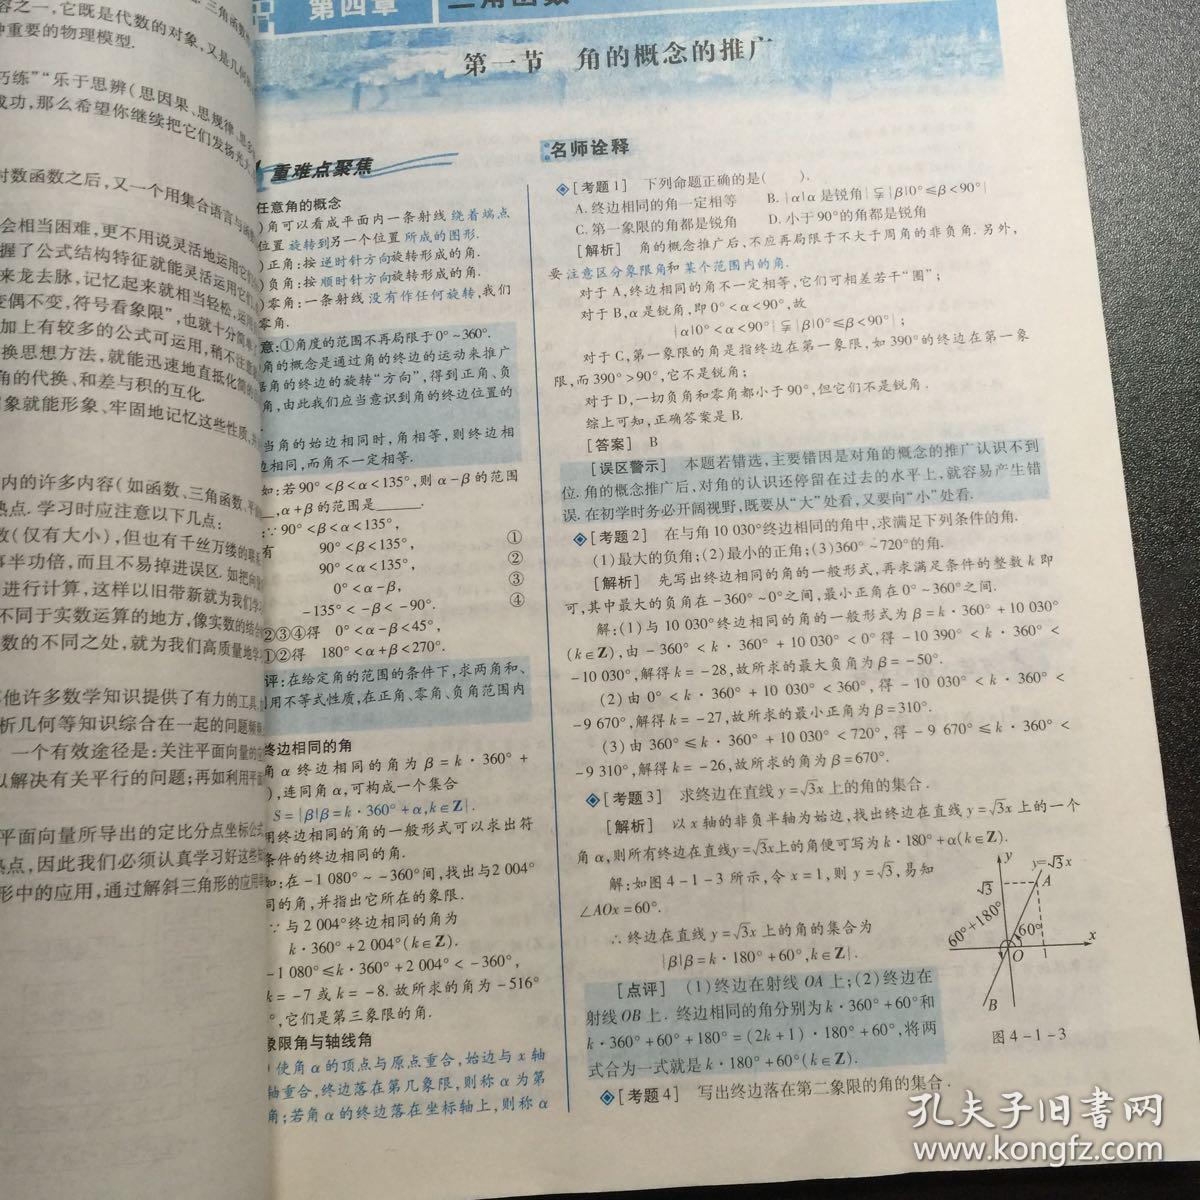 第四章
三角函数
第一节 角的概念的推广
容之一,它既是代数的对象,又是几何
种重要的物理模型.
巧练”“乐于思辨(思因果、思规律、思
成功,那么希望你继续把它们发扬光大
对数函数之后,又一个用集合语言与
会相当困难,更不用说灵活地运用它
握了公式结构特征就能灵活运用它们
来龙去脉,记忆起来就相当轻松,运用
变偶不变,符号看象限”,也就十分简单
加上有较多的公式可运用,稍不注意
换思想方法,就能迅速地直抵化简的
角的代换、和差与积的互化.
图象就能形象、牢固地记忆这些性质,
内的许多内容(如函数、三角函数、平面
热点.学习时应注意以下几点:
数(仅有大小),但也有千丝万缕的联
事半功倍,而且不易掉进误区.如把向
进行计算,这样以旧带新就为我们学
不同于实数运算的地方,像实数的结合
数的不同之处,就为我们高质量地学
其他许多数学知识提供了有力的工具,
析几何等知识综合在一起的问题频
一个有效途径是:关注平面向量的
以解决有关平行的问题;再如利用平面
平面向量所导出的定比分点坐标公式
热点,因此我们必须认真学习好这些
形中的应用,通过解斜三角形的应用
重难点聚焦
任意角的概念
)角可以看成平面内一条射线 绕着端点
位置 旋转到另一个位置 所成的图形.
)正角:按 逆时针方向旋转形成的角.
)负角:按 顺时针方向旋转形成的角.
)零角:一条射线 没有作任何旋转,我们
零角.
意:①角度的范围不再局限于0°~360°.
角的概念是通过角的终边的运动来推广
据角的终边的旋转“方向”,得到正角、负
角,由此我们应当意识到角的终边位置的
当角的始边相同时,角相等,则终边相
边相同,而角不一定相等.
如:若90°<β<α<135°,则 α-β 的范围
,α+β 的范围是______.
:∵90°<β<α<135°,
有 90°<β<135°, ①
90°<α<135°, ②
0°<α-β, ③
-135°<-β<-90°. ④
②③④得 0°<α-β<45°,
①②得 180°<α+β<270°.
评:在给定角的范围的条件下,求两角和、
利用不等式性质,在正角、零角、负角范围内
终边相同的角
角 α 终边相同的角为 β=k·360°+
),连同角 α,可构成一个集合
S={β|β=k·360°+α,k∈Z}.
用终边相同的角的一般形式可以求出符
条件的终边相同的角.
如:在-1 080°~-360°间,找出与2 004°
同的角,并指出它所在的象限.
∵与2 004°终边相同的角为
k·360°+2 004°(k∈Z).
-1 080°≤k·360°+2 004°<-360°,
k=-7 或 k=-8.故所求的角为-516°
°,它们是第三象限的角.
象限角与轴线角
使角 α 的顶点与原点重合,始边与 x 轴
轴重合,终边落在第几象限,则称 α 为第
角;若角 α 的终边落在坐标轴上,则称 α
名师诠释
[考题1] 下列命题正确的是( ).
A.终边相同的角一定相等 B.{α|α是锐角}⫋{β|0°≤β<90°}
C.第一象限的角都是锐角 D.小于90°的角都是锐角
[解析] 角的概念推广后,不应再局限于不大于周角的非负角.另外,
要 注意区分象限角和 某个范围内的角.
对于 A,终边相同的角不一定相等,它们可相差若干“圈”;
对于 B,α是锐角,即0°<α<90°,故
{α|0°<α<90°}⫋{β|0°≤β<90°};
对于 C,第一象限的角是指终边在第一象限,如390°的终边在第一象
限,而390°>90°,它不是锐角;
对于 D,一切负角和零角都小于90°,但它们不是锐角.
综上可知,正确答案是 B.
[答案] B
[误区警示] 本题若错选,主要错因是对角的概念的推广认识不到
位.角的概念推广后,对角的认识还停留在过去的水平上,就容易产生错
误.在初学时务必开阔视野,既要从“大”处看,又要向“小”处看.
[考题2] 在与角10 030°终边相同的角中,求满足下列条件的角.
(1)最大的负角;(2)最小的正角;(3)360°~720°的角.
[解析] 先写出终边相同的角的一般形式,再求满足条件的整数 k 即
可,其中最大的负角在-360°~0°之间,最小正角在0°~360°之间.
解:(1)与10 030°终边相同的角的一般形式为 β=k·360°+10 030°
(k∈Z),由-360°<k·360°+10 030°<0°得-10 390°<k·360°<
-10 030°,解得 k=-28,故所求的最大负角为 β=-50°.
(2)由0°<k·360°+10 030°<360°,得-10 030°<k·360°<
-9 670°,解得 k=-27,故所求的最小正角为 β=310°.
(3)由360°≤k·360°+10 030°<720°,得-9 670°≤k·360°<
-9 310°,解得 k=-26,故所求的角为 β=670°.
[考题3] 求终边在直线 y=√3x 上的角的集合.
[解析] 以 x 轴的非负半轴为始边,找出终边在直线 y=√3x 上的一个
角 α,则所有终边在直线y=√3x上的角便可写为 k·180°+α(k∈Z).
解:如图4-1-3所示,令 x=1,则 y=√3,易知
∠AOx=60°.
∴终边在直线 y=√3x 上的角的集合为
{β|β=k·180°+60°,k∈Z}.
[点评] (1)终边在射线 OA 上;(2)终边在
射线OB上.终边相同的角分别为 k·360°+60°和
k·360°+60°+180°=(2k+1)·180°+60°,将两
式合为一式就是 k·180°+60°(k∈Z).
y
y=√3x
√3
A
60°+180°
60°
O
1
x
B
图4-1-3
[考题4] 写出终边落在第二象限的角的集合.
孔夫子旧书网
www.kongfz.com